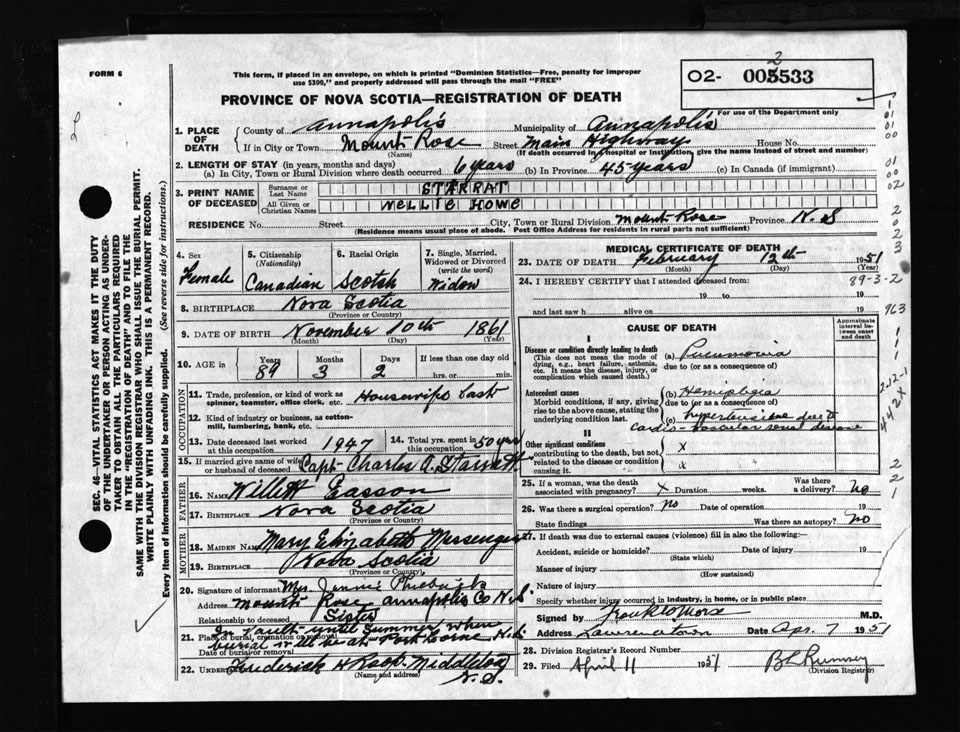 FORM 6
This form, if placed in an envelope, on which is printed "Dominion Statistics—Free, penalty for improper
use $300," and properly addressed will pass through the mail "FREE"
O2- 005533
2
For use of the Department only
PROVINCE OF NOVA SCOTIA—REGISTRATION OF DEATH
1. PLACE OF DEATH County of Annapolis Municipality of Annapolis
If in City or Town Mount Rose Street Main Highway House No.
(Name) (If death occurred in a hospital or institution, give the name instead of street and number)
2. LENGTH OF STAY (in years, months and days)
(a) In City, Town or Rural Division where death occurred 6 years (b) In Province 45 years (c) In Canada (if immigrant)
3. PRINT NAME OF DECEASED Surname or Last Name STARRAT
All Given or Christian Names NELLIE HOWE
RESIDENCE No. Street City, Town or Rural Division Mount Rose Province N.S
(Residence means usual place of abode. Post Office Address for residents in rural parts not sufficient)
4. Sex Female
5. Citizenship (Nationality) Canadian
6. Racial Origin Scotch
7. Single, Married, Widowed or Divorced (write the word) Widow
8. BIRTHPLACE Nova Scotia
(Province or Country)
9. DATE OF BIRTH November 10th 1861
(Month) (Day) (Year)
10. AGE in Years 89 Months 3 Days 2 If less than one day old hrs. or min.
OCCUPATION
11. Trade, profession, or kind of work as spinner, teamster, office clerk, etc.
12. Kind of industry or business, as cotton-mill, lumbering, bank, etc.
13. Date deceased last worked at this occupation 1947 14. Total yrs. spent in this occupation 50 yrs
15. If married give name of wife or husband of deceased Capt- Charles A. Starratt
FATHER
16. NAME Willett Easson
17. BIRTHPLACE Nova Scotia
(Province or Country)
MOTHER
18. MAIDEN NAME Mary Elizabeth Messenger
19. BIRTHPLACE Nova Scotia
(Province or Country)
20. Signature of informant Mrs. Jennie
Address Mount Rose Annapolis Co N.S.
Relationship to deceased Sister
21. Place of burial, cremation or removal In Vault until Summer, when
burial will be at Port Lorne N.S.
Date of burial or removal
22. UNDERTAKER Frederick H Roop. Middleton N.S.
(Name and address)
MEDICAL CERTIFICATE OF DEATH
23. DATE OF DEATH February 12th 1951
(Month) (Day) (Year)
24. I HEREBY CERTIFY that I attended deceased from:
19 to 19
and last saw h alive on 19
89-3-2
963
CAUSE OF DEATH
Approximate interval between onset and death
I
Disease or condition directly leading to death
(This does not mean the mode of dying, e.g., heart failure, asthenia, etc. It means the disease, injury, or complication which caused death.)
(a) Pneumonia
due to (or as a consequence of)
Antecedent causes
Morbid conditions, if any, giving rise to the above cause, stating the underlying condition last.
(b) Hemiplegia
due to (or as a consequence of)
(c) hypertensive
cardio-vascular renal disease
II
Other significant conditions
contributing to the death, but not related to the disease or condition causing it.
x
x
2-12-1
442X
25. If a woman, was the death associated with pregnancy? x Duration weeks. Was there a delivery? No
26. Was there a surgical operation? No Date of operation 19
State findings Was there an autopsy? No
27. If death was due to external causes (violence) fill in also the following:
Accident, suicide or homicide? Date of injury 19
(State which)
Manner of injury
(How sustained)
Nature of injury
Specify whether injury occurred in industry, in home, or in public place
Signed by M.D.
Address Lawrencetown Date Apr. 7 1951
28. Division Registrar's Record Number
29. Filed April 11 1951 B L Rumsey
(Division Registrar)
SEC. 46—VITAL STATISTICS ACT MAKES IT THE DUTY
OF THE UNDERTAKER OR PERSON ACTING AS UNDER-
TAKER TO OBTAIN ALL THE PARTICULARS REQUIRED
IN THE "REGISTRATION OF DEATH" AND TO FILE THE
SAME WITH THE DIVISION REGISTRAR WHO SHALL ISSUE THE BURIAL PERMIT.
WRITE PLAINLY WITH UNFADING INK. THIS IS A PERMANENT RECORD.
Every item of information should be carefully supplied. (See reverse side for instructions.)